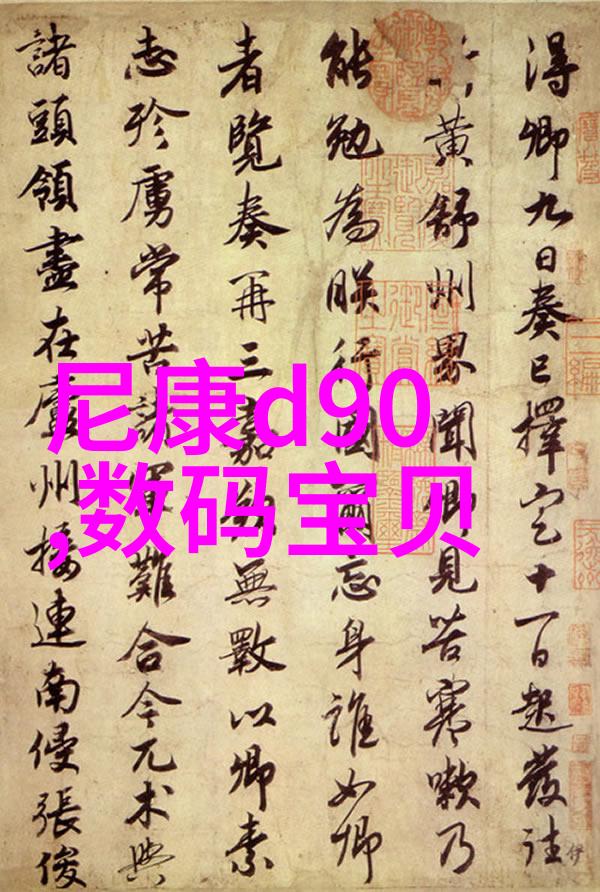 尼康d90
,数码宝贝
得卿九日奏已擇定十一日起發往
黃舒州界聞卿見苦寒嗽乃
能勉為朕行國爾忘身誰如卿
者覽奏再三嘉歎無斁以卿素
志殄虜常苦諸軍難合今兀术與
諸頭領盡在廬州接連南侵張俊